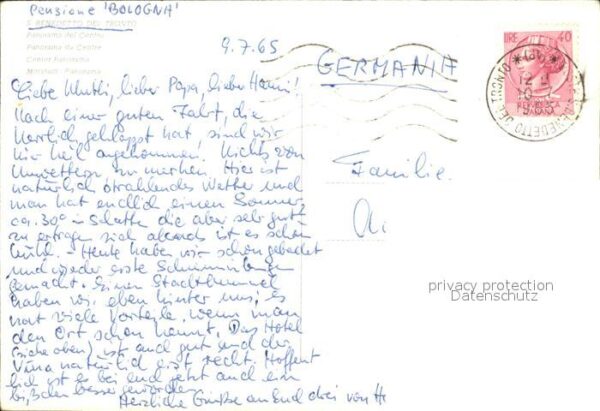 Pensione 'BOLOGNA'
S. BENEDETTO DEL TRONTO
Panorama del Centro
Panorama du Centre
Centre Panorama
9.7.65
GERMANIA
LIRE 40
12
10
BENEDETTO DEL TRONTO
Liebe Mutti, lieber Papa, lieber Hanni!
Nach einer guten Fahrt, die
herrlich geklappt hat, sind wir
hier heil angekommen. Nichts von
Unwettern zu merken. Hier ist
natürlich strahlendes Wetter und
man hat endlich einen Sommer
ca. 30° im Schatten die aber sehr gut
zu ertragen sind abends ist es schön
kühl. - Heute haben wir schon gebadet
und wieder erste Schwimmübungen
gemacht. Einen Stadtbummel
haben wir eben hinter uns; es
hat viele Vorteile, wenn man
den Ort schon kennt. Das Hotel
(siehe oben) ist auch gut und der
Vino natürlich erst recht. Hoffent
lich ist es bei euch jetzt auch ein
bißchen besser geworden.
Herzliche Grüße an Euch drei von
Familie
privacy protection
Datenschutz